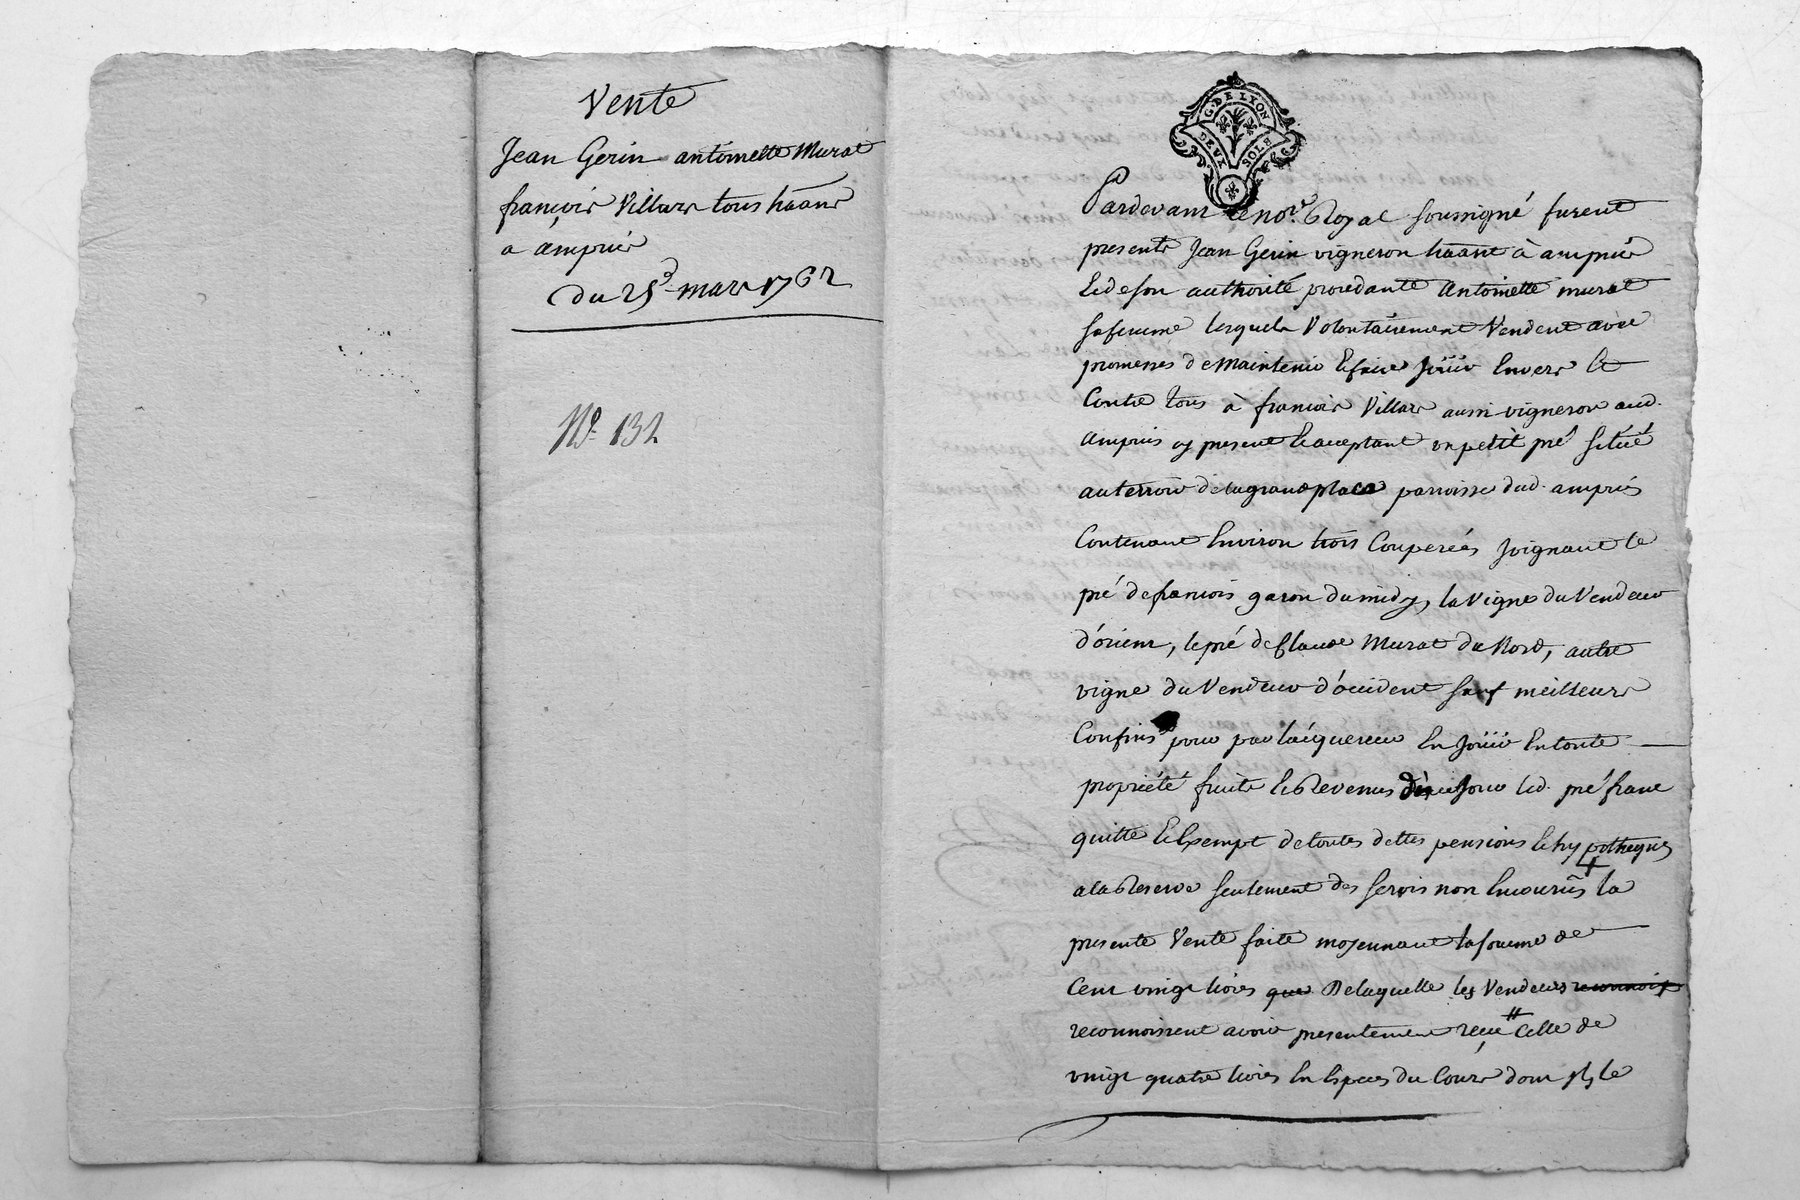 Vente
Jean Gerin antoinette Murat
françois Villars tous haâns
a ampuis
du 25e mars 1762
No. 132
G. DE LYON
DEUX SOLS
Pardevant le nore. Royal soussigné furent
presents Jean Gerin vigneron haant à ampuis
Et de son authorité procedante Antoinette murat
sa femme lesquels Volontairement Vendent avec
promesses de maintenir Et faire jouir Envers Et
Contre tous à françois Villars aussi vigneron aud.
ampuis cy present Et acceptant un petit pré situé
au terroir de la grand place parroisse dud. ampuis
Contenant Environ trois Couperées joignant le
pré de francois garon du midy, la vigne du Vendeur
d'orient, le pré de Claude Murat du Nord, autre
vigne du Vendeur d'occident sauf meilleurs
Confins pour par lacquereur En jouir En toute
propriété fruits Et Revenus dès ce jour led. pré franc
quitte Et Exempt de toutes dettes pensions Et hypotheques
a la Reserve seulement des servis non Encourûs la
presente Vente faite moyennant la somme de
Cent vingt livres que De laquelle les Vendeurs reconnoiss
reconnoissent avoir presentement reçue celle de
vingt quatre livres En Especes du Cours dont ils le